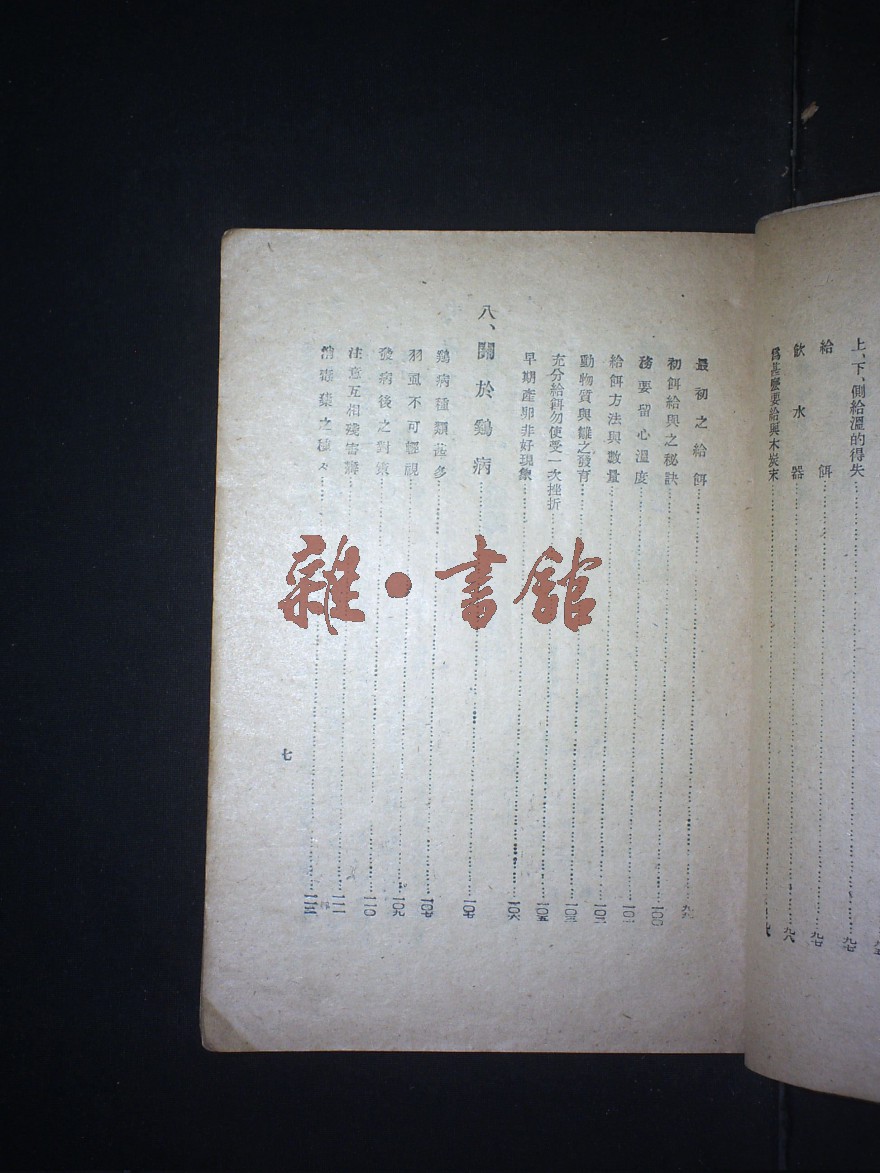 上、下、側給溫的得失………九七
給餌………九七
飲水器………九八
爲甚麼要給與木炭末………
最初之給餌………九九
初餌給與之秘訣………一〇〇
務要留心溫度………一〇一
給餌方法與數量………一〇二
動物質與雛之發育………一〇三
充分給餌勿使受一次挫折………一〇五
早期產卵非好現象………一〇六
八、關於鷄病………一〇七
鷄病種類甚多………一〇七
羽虱不可輕視………一〇九
發病後之對策………一一〇
注意互相殘害毒………一一一
消毒藥之種々………一一三
七
雜·書館